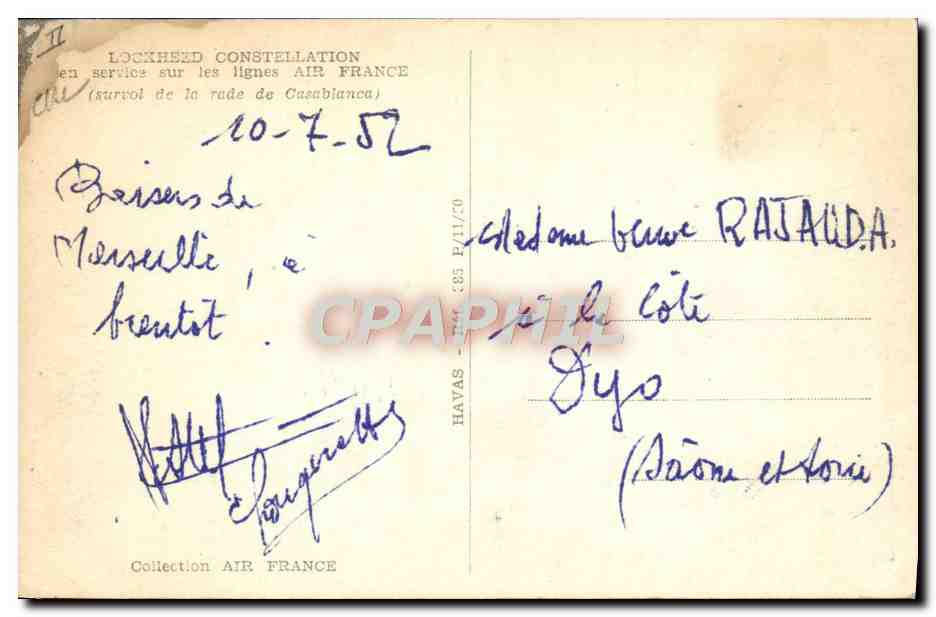 II
LOCKHEED CONSTELLATION
en service sur les lignes AIR FRANCE
(survol de la rade de Casablanca)
10-7-52
Baisers de
Marseille, à
bientôt.
Collection AIR FRANCE
HAVAS
Madame veuve RAJAUD.A.
à la Côte
Dyo
(Saône et Loire)
CPAPHIL